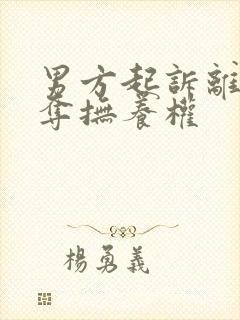 男方起訴離
奪撫養權
楊勇義